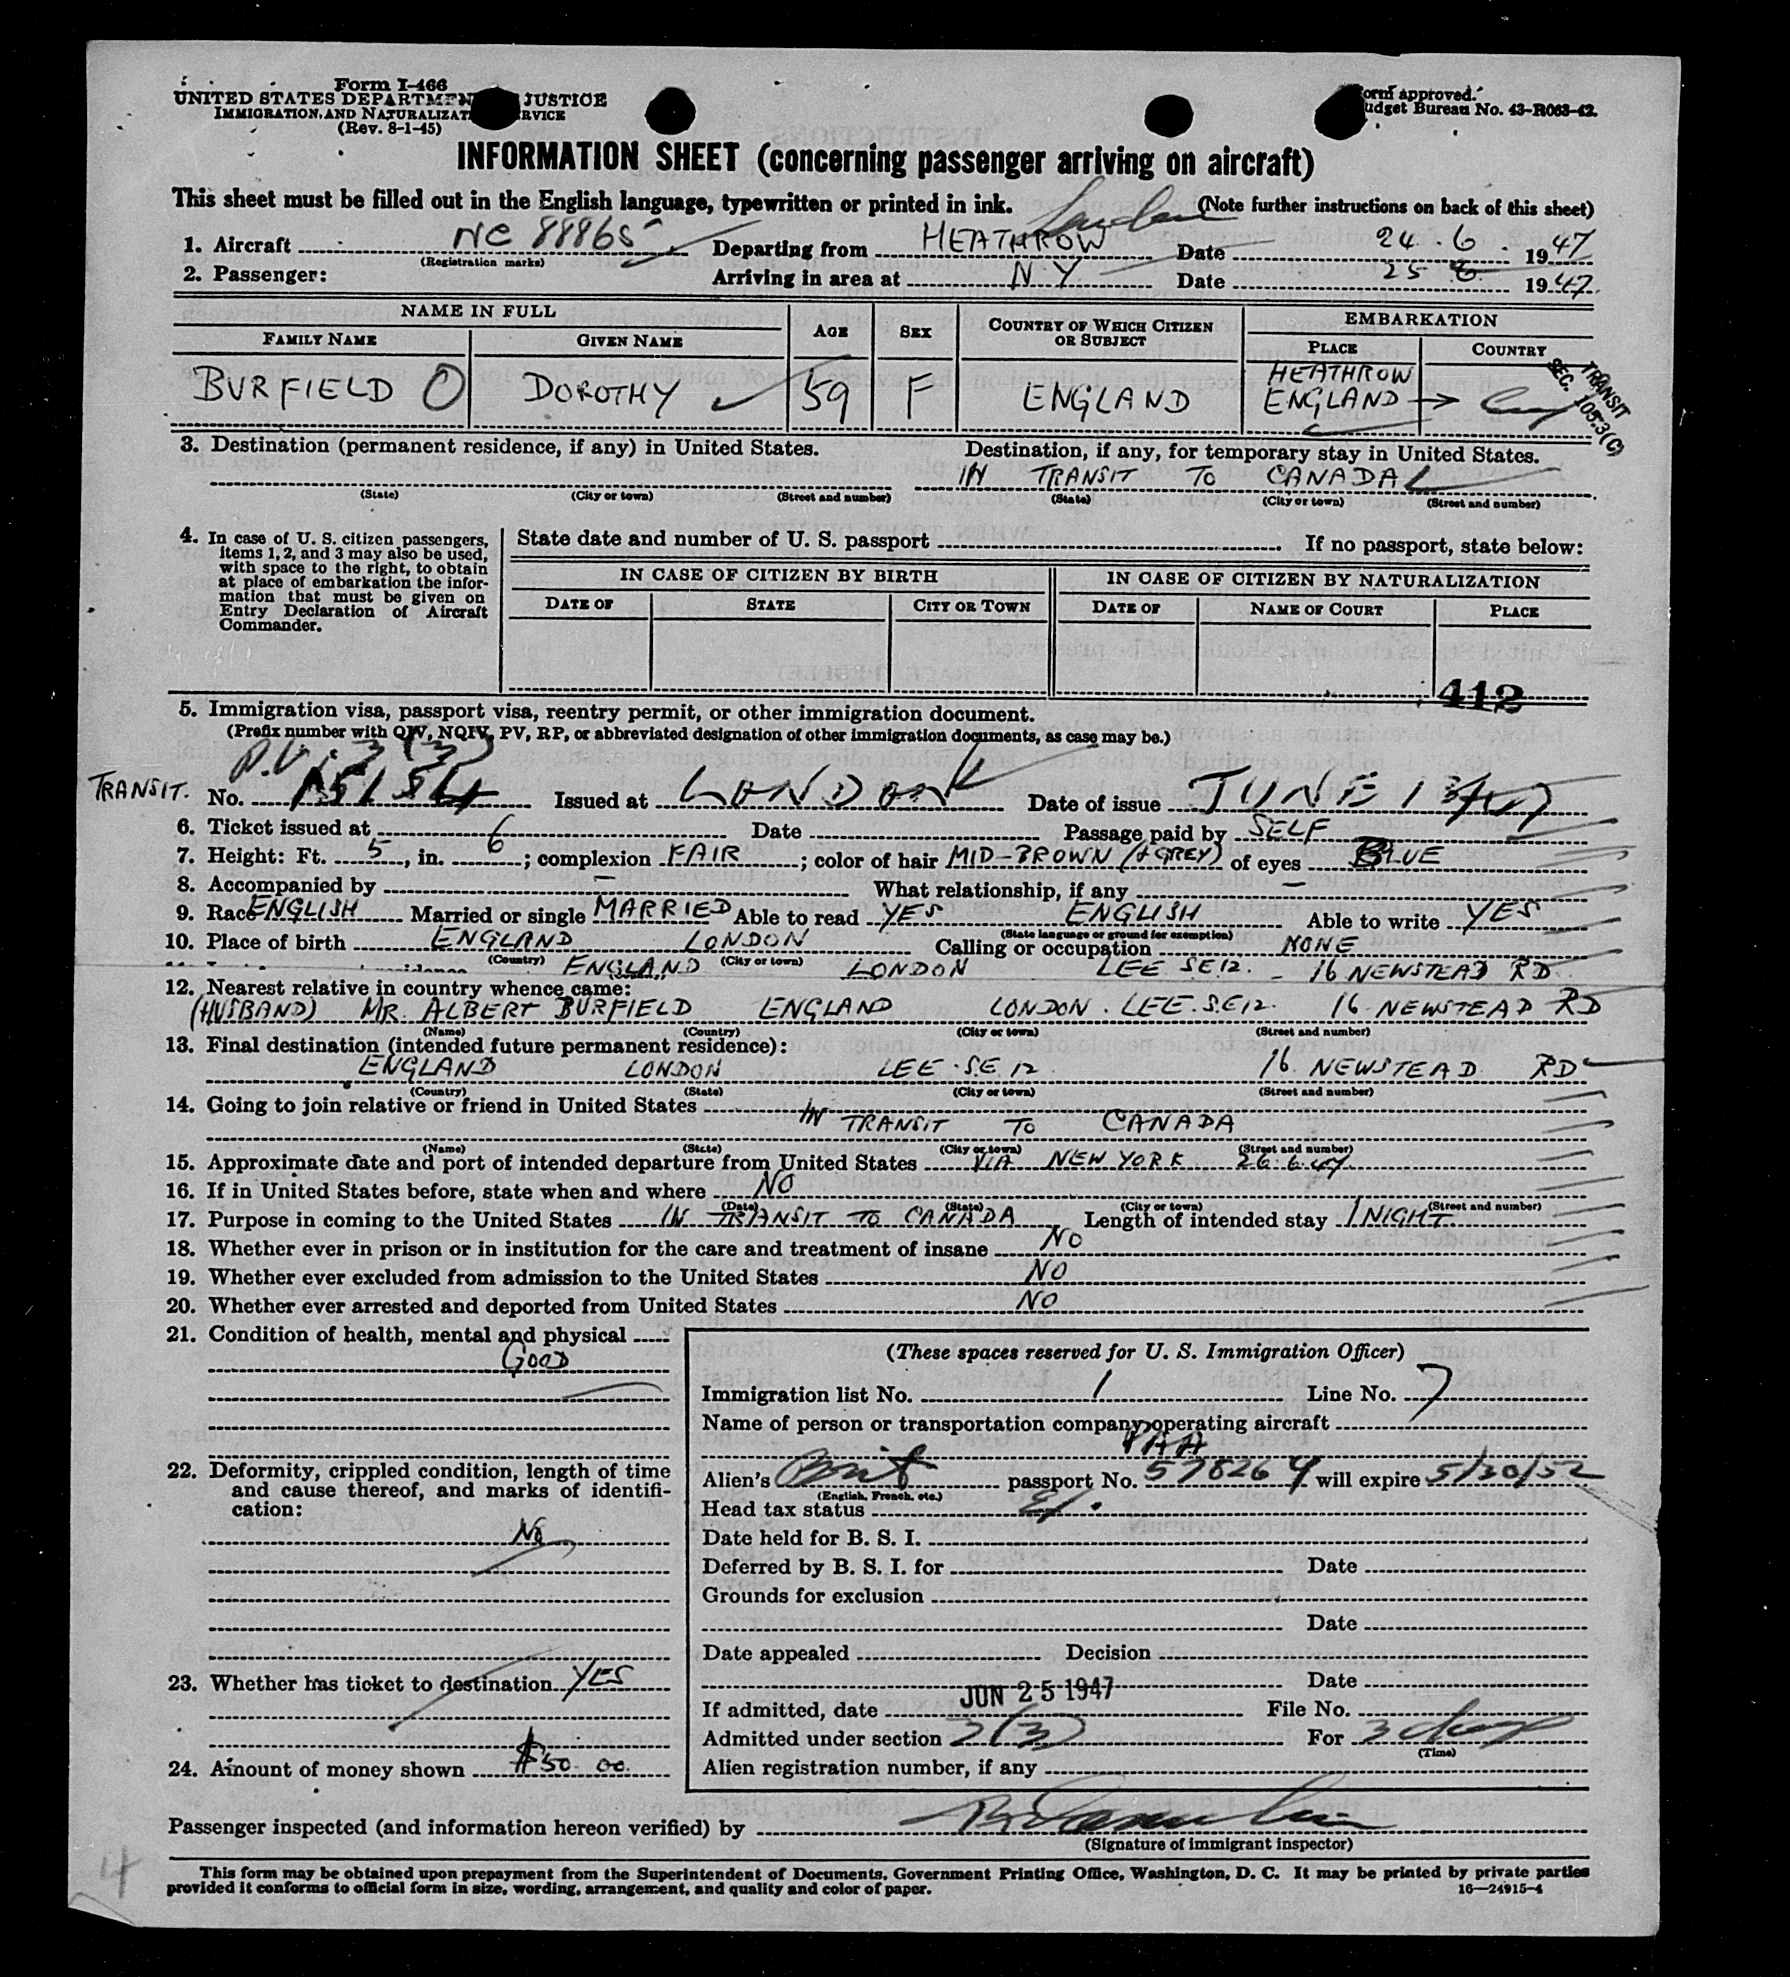 Form I-466
UNITED STATES DEPARTMEN JUSTICE
IMMIGRATION AND NATURALIZAT RVICE
(Rev. 8-1-45)
orm approved.
udget Bureau No. 43-R063-42.
INFORMATION SHEET (concerning passenger arriving on aircraft)
This sheet must be filled out in the English language, typewritten or printed in ink. London (Note further instructions on back of this sheet)
1. Aircraft NC 88865 Departing from HEATHROW Date 24.6. 1947
(Registration marks)
2. Passenger: Arriving in area at N Y Date 25 6 1947
NAME IN FULL AGE SEX COUNTRY OF WHICH CITIZEN OR SUBJECT EMBARKATION
FAMILY NAME GIVEN NAME PLACE COUNTRY
BURFIELD DOROTHY 59 F ENGLAND HEATHROW ENGLAND
TRANSIT
SEC. 105.3(C)
3. Destination (permanent residence, if any) in United States. Destination, if any, for temporary stay in United States.
IN TRANSIT TO CANADA
(State) (City or town) (Street and number) (State) (City or town) (Street and number)
4. In case of U. S. citizen passengers, items 1, 2, and 3 may also be used, with space to the right, to obtain at place of embarkation the information that must be given on Entry Declaration of Aircraft Commander.
State date and number of U. S. passport If no passport, state below:
IN CASE OF CITIZEN BY BIRTH IN CASE OF CITIZEN BY NATURALIZATION
DATE OF STATE CITY OR TOWN DATE OF NAME OF COURT PLACE
412
5. Immigration visa, passport visa, reentry permit, or other immigration document.
(Prefix number with QIV, NQIV, PV, RP, or abbreviated designation of other immigration documents, as case may be.)
P.V. 3(3)
TRANSIT. No. 15154 Issued at LONDON Date of issue JUNE 13/47
6. Ticket issued at Date Passage paid by SELF
7. Height: Ft. 5, in. 6; complexion FAIR; color of hair MID-BROWN (& GREY) of eyes BLUE
8. Accompanied by — What relationship, if any —
9. Race ENGLISH Married or single MARRIED Able to read YES ENGLISH Able to write YES
(State language or ground for exemption)
10. Place of birth ENGLAND LONDON Calling or occupation NONE
(Country) (City or town)
ENGLAND LONDON LEE SE12. - 16 NEWSTEAD RD
12. Nearest relative in country whence came:
(HUSBAND) MR. ALBERT BURFIELD ENGLAND LONDON. LEE. S.E12. 16 NEWSTEAD RD
(Name) (Country) (City or town) (Street and number)
13. Final destination (intended future permanent residence):
ENGLAND LONDON LEE. S.E 12 16 NEWSTEAD RD
(Country) (State) (City or town) (Street and number)
14. Going to join relative or friend in United States
IN TRANSIT TO CANADA
(Name) (State) (City or town) (Street and number)
15. Approximate date and port of intended departure from United States VIA NEW YORK 26.6.47
16. If in United States before, state when and where NO
(Date) (State) (City or town) (Street and number)
17. Purpose in coming to the United States IN TRANSIT TO CANADA Length of intended stay 1 NIGHT
18. Whether ever in prison or in institution for the care and treatment of insane NO
19. Whether ever excluded from admission to the United States NO
20. Whether ever arrested and deported from United States NO
21. Condition of health, mental and physical
GOOD
22. Deformity, crippled condition, length of time and cause thereof, and marks of identification:
NO
23. Whether has ticket to destination YES
24. Amount of money shown $50.00.
(These spaces reserved for U. S. Immigration Officer)
Immigration list No. 1 Line No. 7
Name of person or transportation company operating aircraft
PAA
Alien's Brit passport No. 578264 will expire 5/30/52
(English, French, etc.)
Head tax status
Date held for B. S. I.
Deferred by B. S. I. for Date
Grounds for exclusion
Date
Date appealed Decision
Date
If admitted, date JUN 25 1947 File No.
Admitted under section 3(3) For 3 days
(Time)
Alien registration number, if any
Passenger inspected (and information hereon verified) by
(Signature of immigrant inspector)
This form may be obtained upon prepayment from the Superintendent of Documents, Government Printing Office, Washington, D. C. It may be printed by private parties
provided it conforms to official form in size, wording, arrangement, and quality and color of paper. 16—24915-4
4